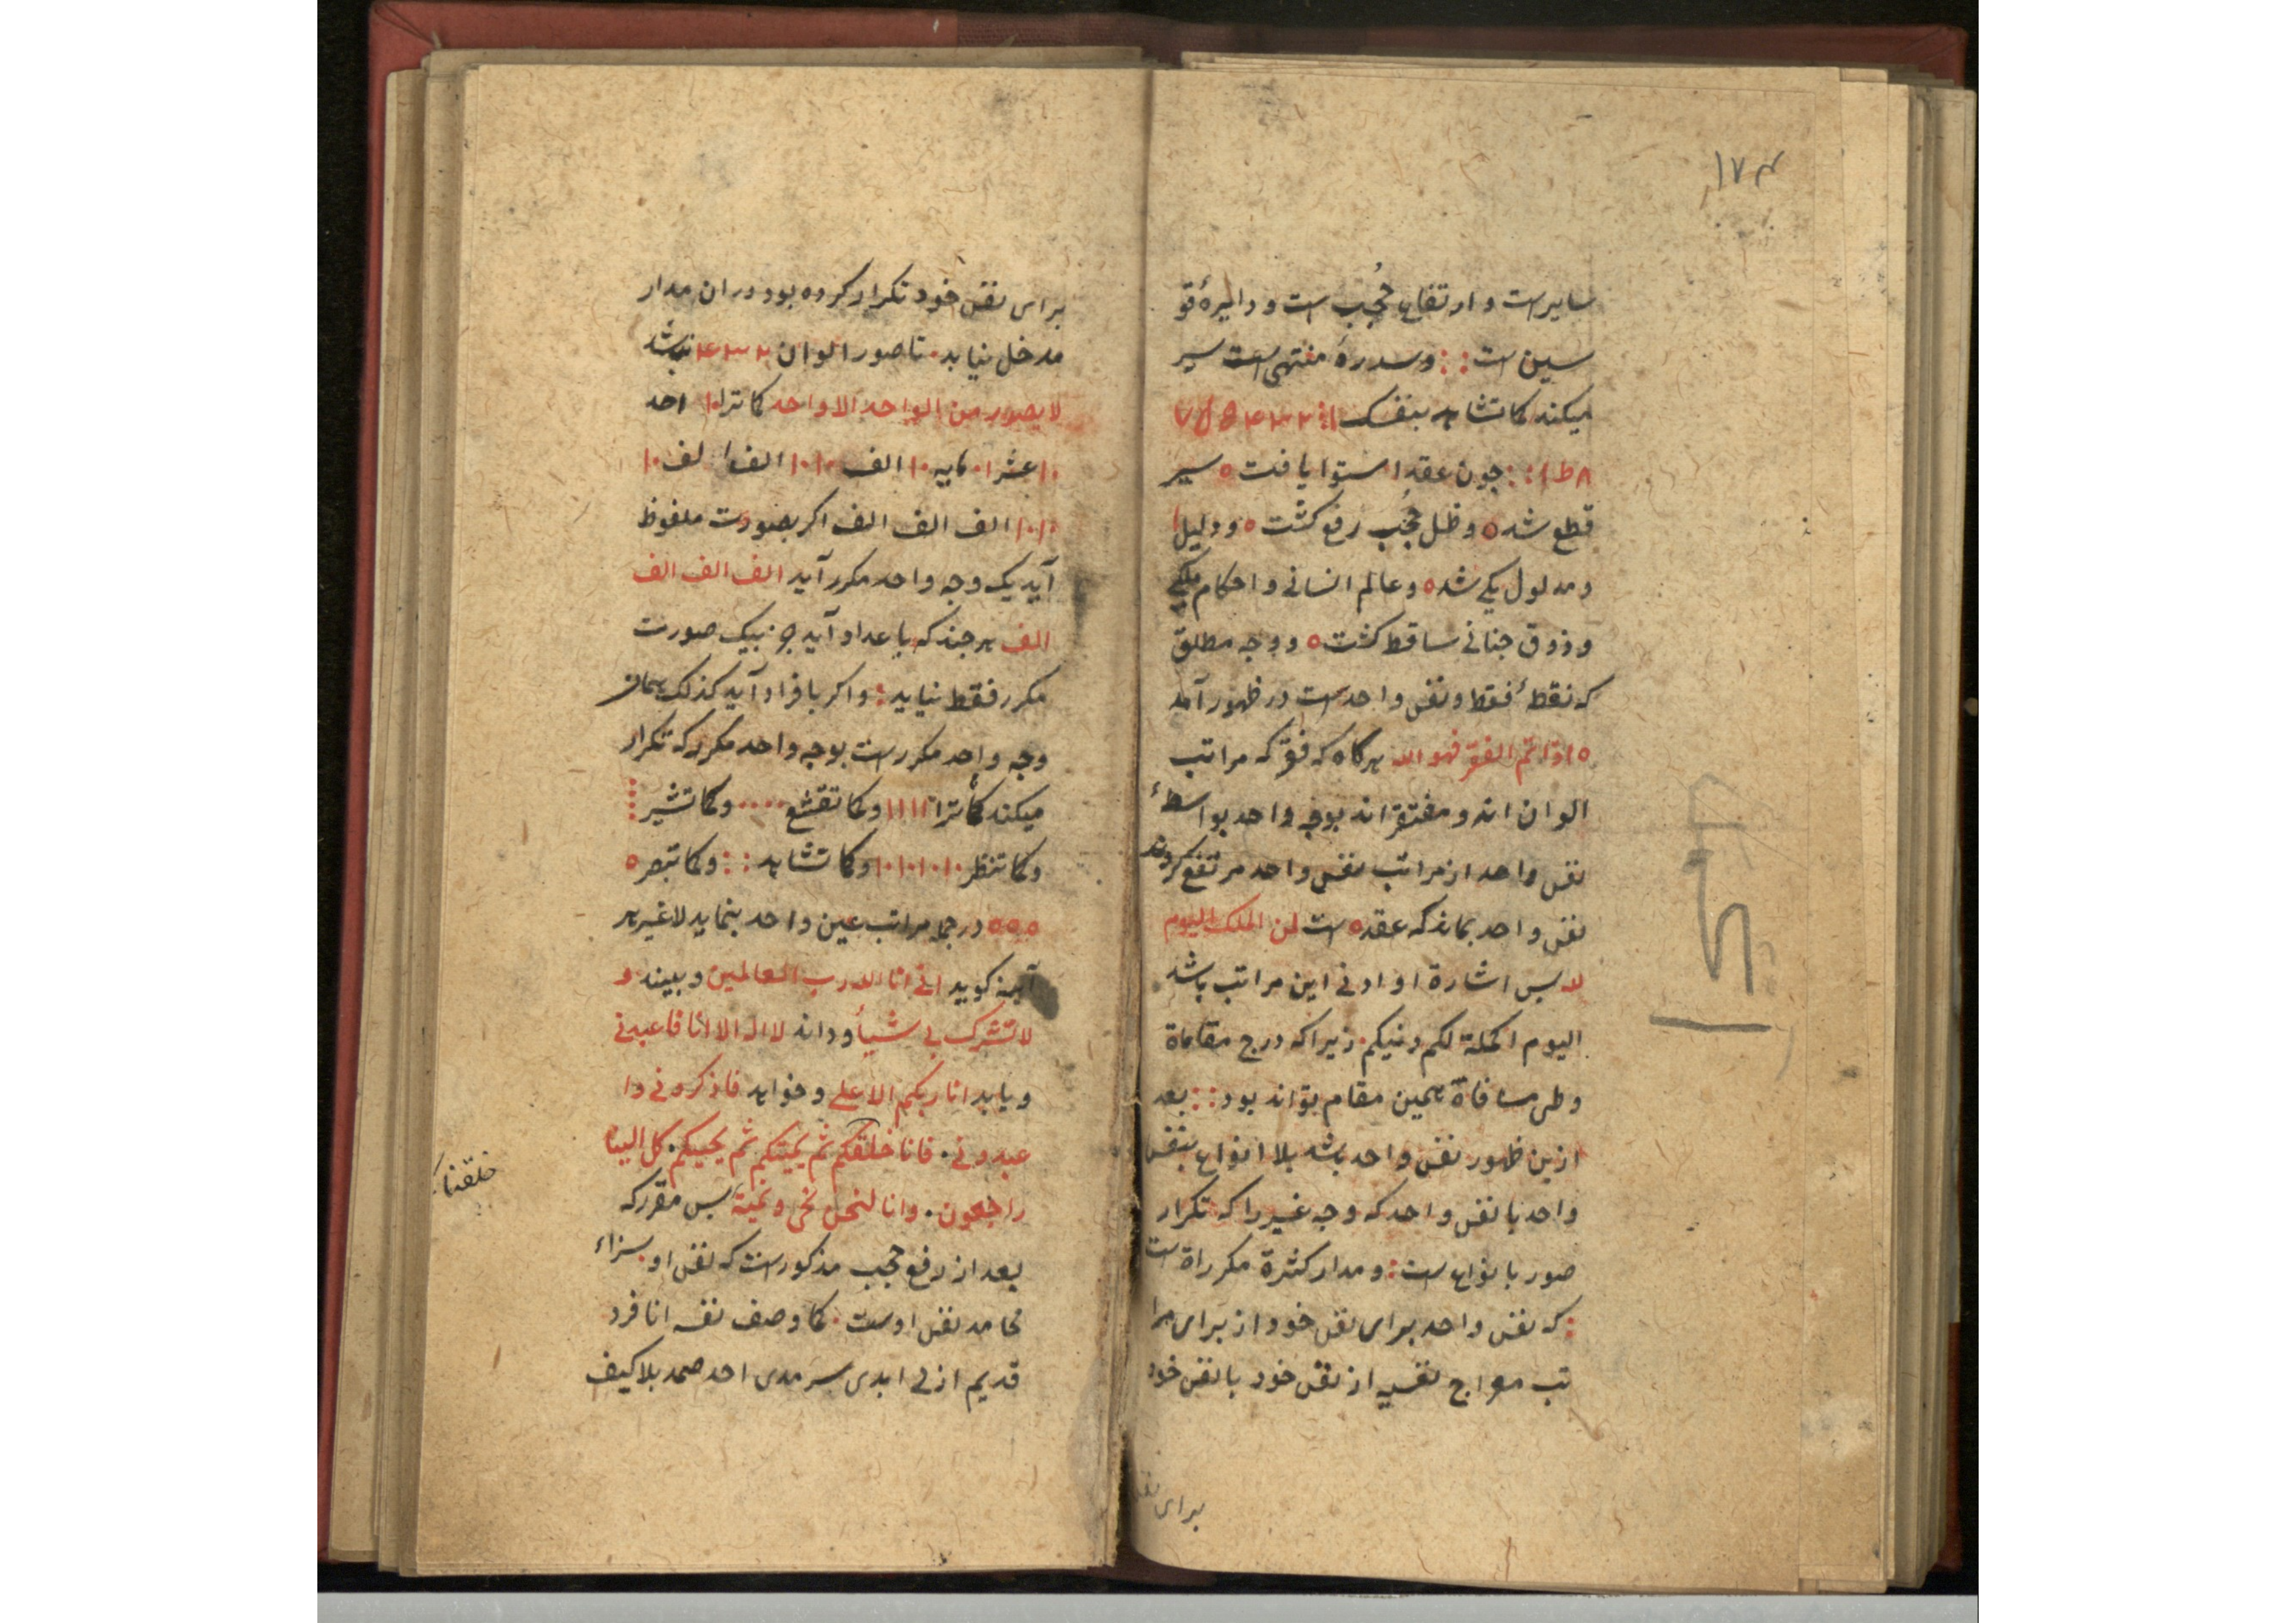 ۱۷۴
سایر است و ارتفاع حُجُب است و دایرهٔ قو
سین است : : و سدرهٔ منتهی است سیر
میکند کما تشاهد بنفسک ۱ : ۲ ۳ ۴ ۵ ۶ ۷
۸ ط ۱ : : چون عقد استوا یافت ه سیر
قطع شد ه و ظل حُجُب رفع کشت ه و دلیل
و مدلول یکی شد ه و عالم انسانی و احکام ملکی
و ذوق جنانی ساقط کشت ه و وجه مطلق
که نقطهٔ فقط و نفس واحد است در ظهور آمد
ه اذا تم الفقر فهو الله هر کاه که فقر که مراتب
الوان اند و مفتقر اند بوجه واحد بواسطهٔ
نفس واحد از مراتب نفس واحد مرتفع کردند
نفس واحد بماند که عقد ه است لمن الملک الیوم
لله بس اشارة او ادنی این مراتب باشد
الیوم اکملة لکم دینکم زیرا که درج مقاماة
وطی مسافاة همین مقام تواند بود : : بعد
ازین ظهور نفس واحد باشد بلا انواع بنفس
واحد با نفس واحد که وجه غیر را که تکرار
صور بانواع است : و مدار کثرة مکرراة است
: که نفس واحد برای نفس خود از برای مرا
تب معراج نفسیه از نفس خود با نفس خود
برای نفس
برای نفس خود تکرار کرده بود دران مدار
مدخل نیابد . تا صور الوان ۲ ۳ ۴ نباشد
لا یصدر من الواحد الا واحد کما ترا ۱۰ احد
۱۰ عشر ۱۰ مایه ۱۰ الف ۱۰۱۰ الف الف ۱۰
۱۰۱۰ الف الف الف اکر بصورت ملفوظ
آید یک وجه واحد مکرر آید الف الف الف
الف هر چند که باعداد آید جز بیک صورت
مکرر فقط نیاید : و اکر بافراد آید کذلک همان
وجه واحد مکرر است بوجه واحد مکرر که تکرار
میکند کما ترا ۱۱۱۱ و کما تقشع .... و کما تشیر ⁝
و کما تنظر ۱۰۱۰۱۰۱۰ و کما تشاهد : : و کما تبصر ه
ه ه ه در جمله مراتب عین واحد بنماید لا غیر هر
آینه کوید انی انا الله رب العالمین و بیند و
لا تشرک بی شیأ و داند لا اله الا انا فاعبدنی
و یابد انا ربکم الاعلی و خواهد فاذکرونی وا
عبدونی . فانا خلقکم ثم یمیتکم ثم یحییکم . کل الینا
خلقناکم
راجعون . و انا لنحن نحی و نمیة بس مقرر که
بعد از رفع حجب مذکور است که نفس او سزاء
محامد نفس اوست . کما وصف نفسه انا فرد
قدیم ازلی ابدی سرمدی احد صمد بلا کیف